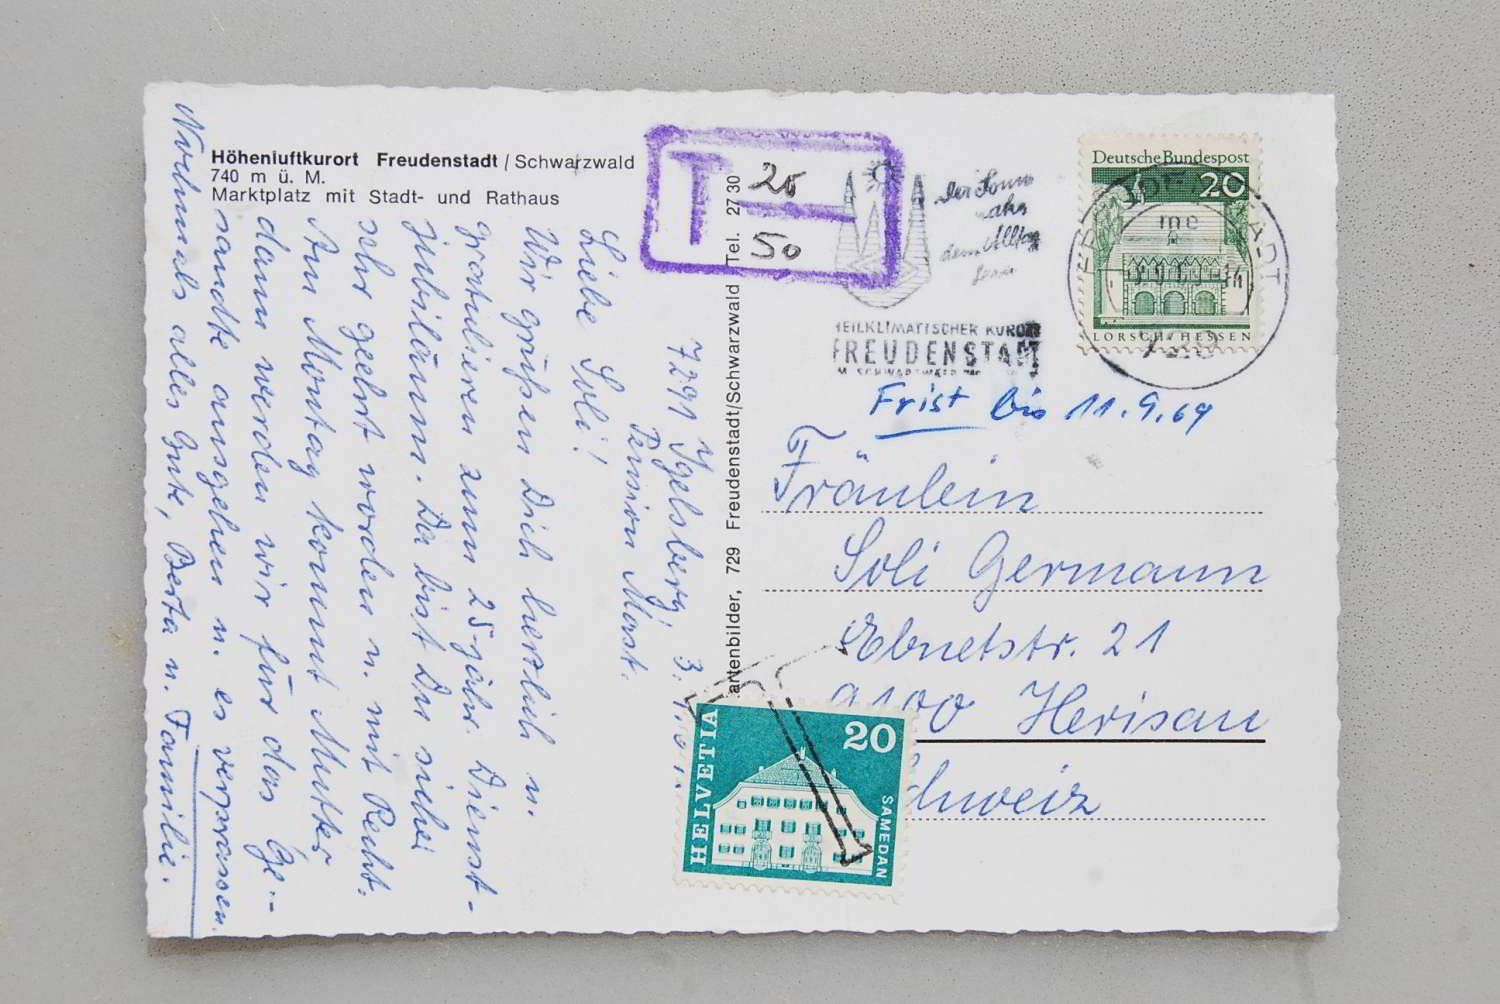 Höhenluftkurort Freudenstadt / Schwarzwald
740 m ü. M.
Marktplatz mit Stadt- und Rathaus
7291 Igelsberg, 3.
Pension Mast.
Liebe Soli!
Wir grüßen Dich herzlich u.
gratulieren zum 25-jähr. Dienst-
jubiläum. Da bist Du sicher
sehr geehrt worden u. mit Recht.
Am Montag kommt Mutter
dann werden wir für das Ge-
sandte ausgehen u. es verprassen.
Nochmals alles Gute, Berta u. Familie.
artenbilder, 729 Freudenstadt/Schwarzwald Tel. 27 30
T 20
50
Der Sonne
nahe
dem Alltag
fern
HEILKLIMATISCHER KURORT
FREUDENSTADT
Deutsche Bundespost
20
LORSCH/HESSEN
Frist bis 11.9.69
Fräulein
Soli Germann
Ebnetstr. 21
9100 Herisau
Schweiz
HELVETIA
20
SAMEDAN
T